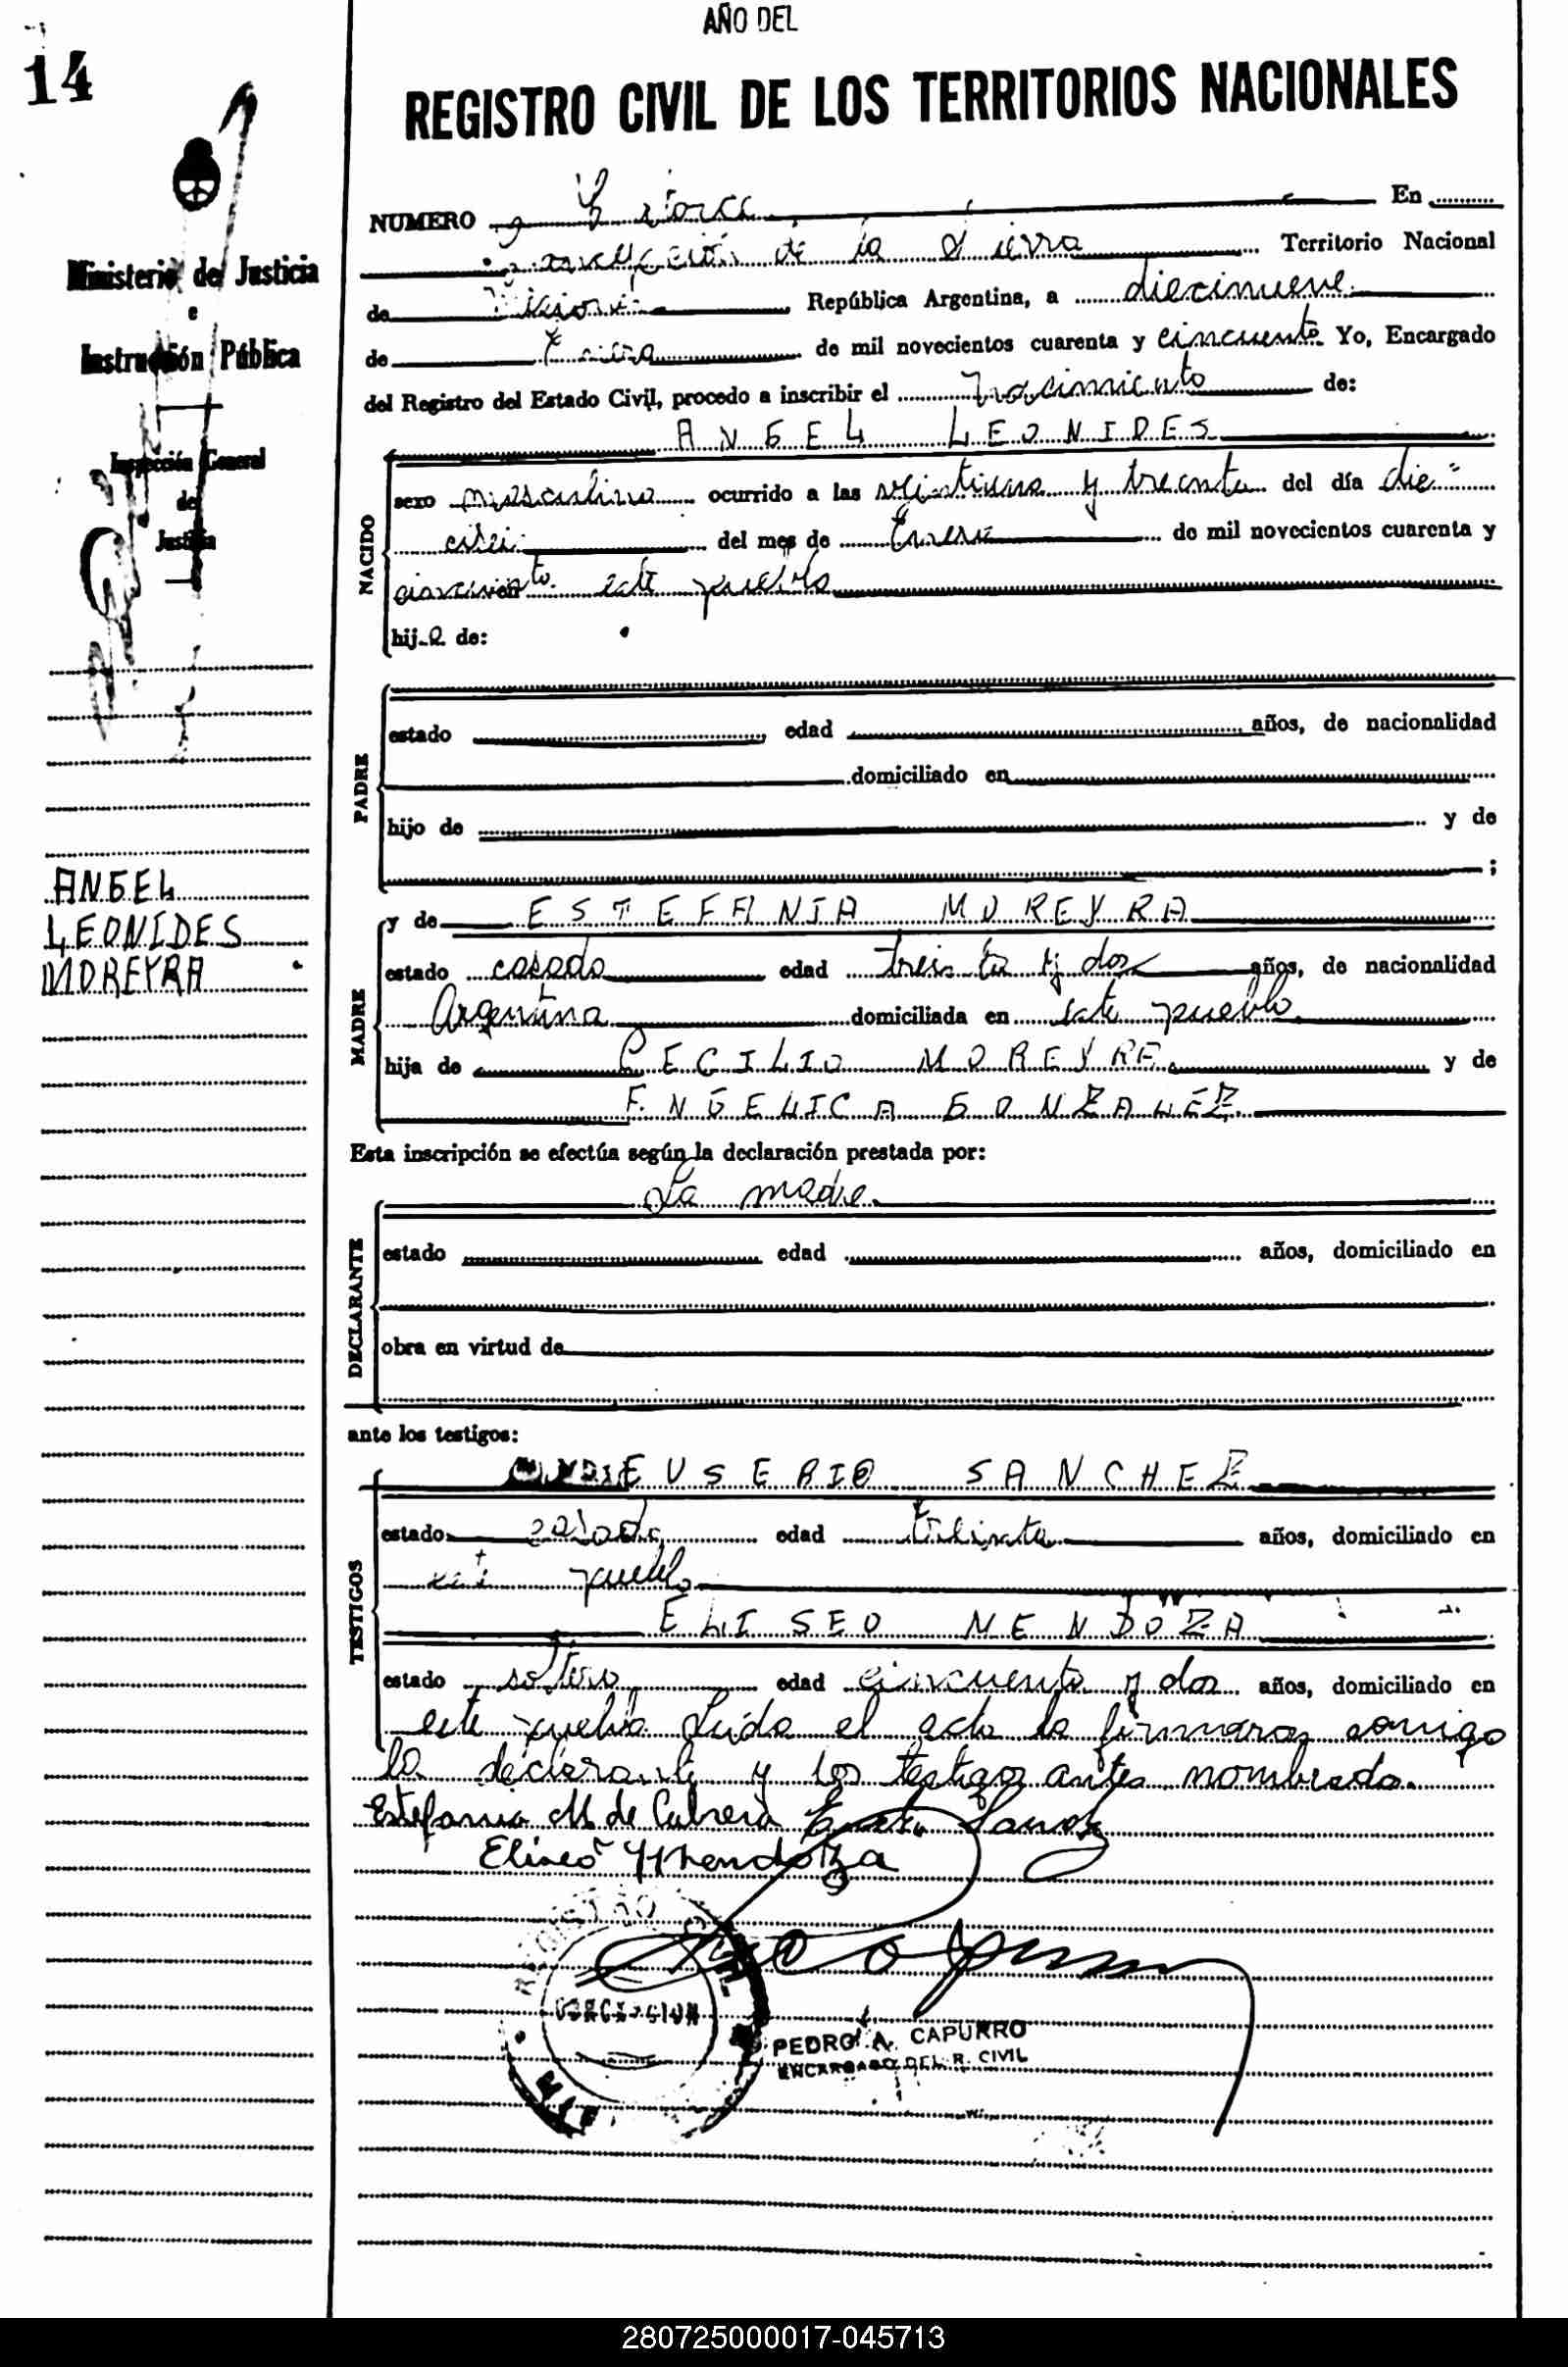 AÑO DEL
14
REGISTRO CIVIL DE LOS TERRITORIOS NACIONALES
Ministerio de Justicia
e
Instrucción Pública
Inspección General
de
Justicia
ANGEL
LEONIDES
MOREYRA
NUMERO Catorce En
de la Sierra Territorio Nacional
de Misiones República Argentina, a diecinueve
de Enero de mil novecientos cuarenta y cincuenta Yo, Encargado
del Registro del Estado Civil, procedo a inscribir el nacimiento de:
ANGEL LEONIDES
NACIDO
sexo masculino ocurrido a las y treinta del día die=
del mes de Enero de mil novecientos cuarenta y
cincuenta este pueblo
hijo de:
PADRE
estado edad años, de nacionalidad
domiciliado en
hijo de y de
;
MADRE
y de ESTEFANIA MOREYRA
estado casada edad treinta y dos años, de nacionalidad
Argentina domiciliada en este pueblo
hija de CECILIO MOREYRA y de
ANGELICA GONZALEZ
Esta inscripción se efectúa según la declaración prestada por:
La madre
DECLARANTE
estado edad años, domiciliado en
obra en virtud de
ante los testigos:
TESTIGOS
EUSEBIO SANCHEZ
estado casado edad treinta años, domiciliado en
este pueblo
ELISEO MENDOZA
estado soltero edad cincuenta y dos años, domiciliado en
este pueblo Leída el acta la firmaron conmigo
la declarante y los testigos antes nombrado.
Estefania M de Cabrera
Eliseo Mendoza
REGISTRO CIVIL
CONCEPCION
PEDRO A. CAPURRO
ENCARGADO DEL R. CIVIL
280725000017-045713